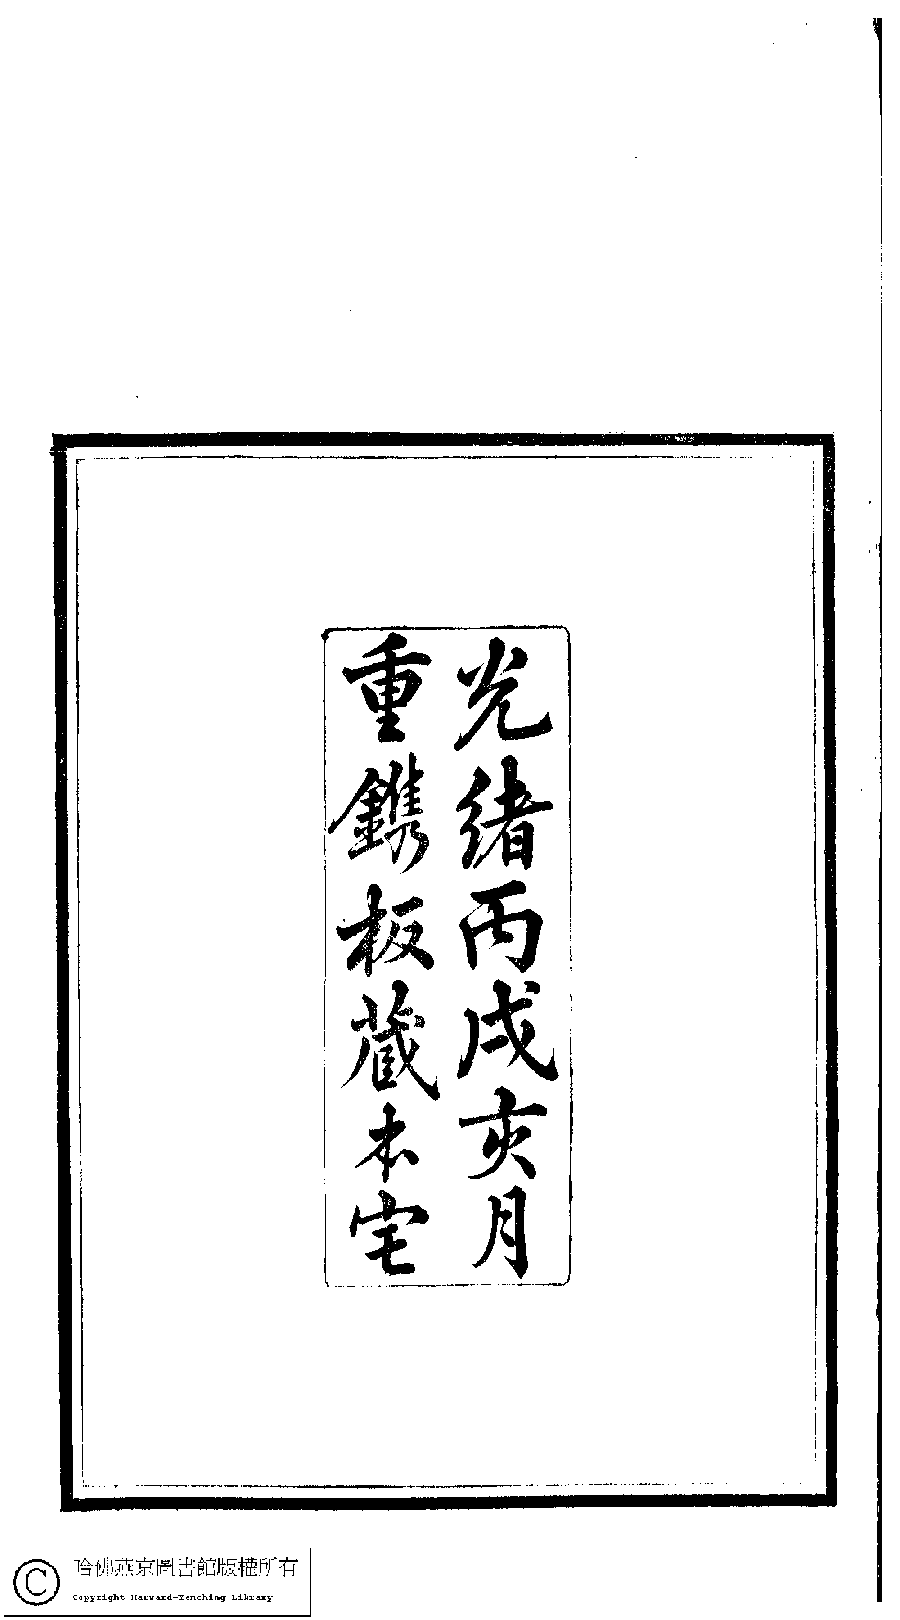 光緒丙戌亥月
重鐫板藏本宅
哈佛燕京圖書館版權所有
Copyright Harvard-Yenching Library